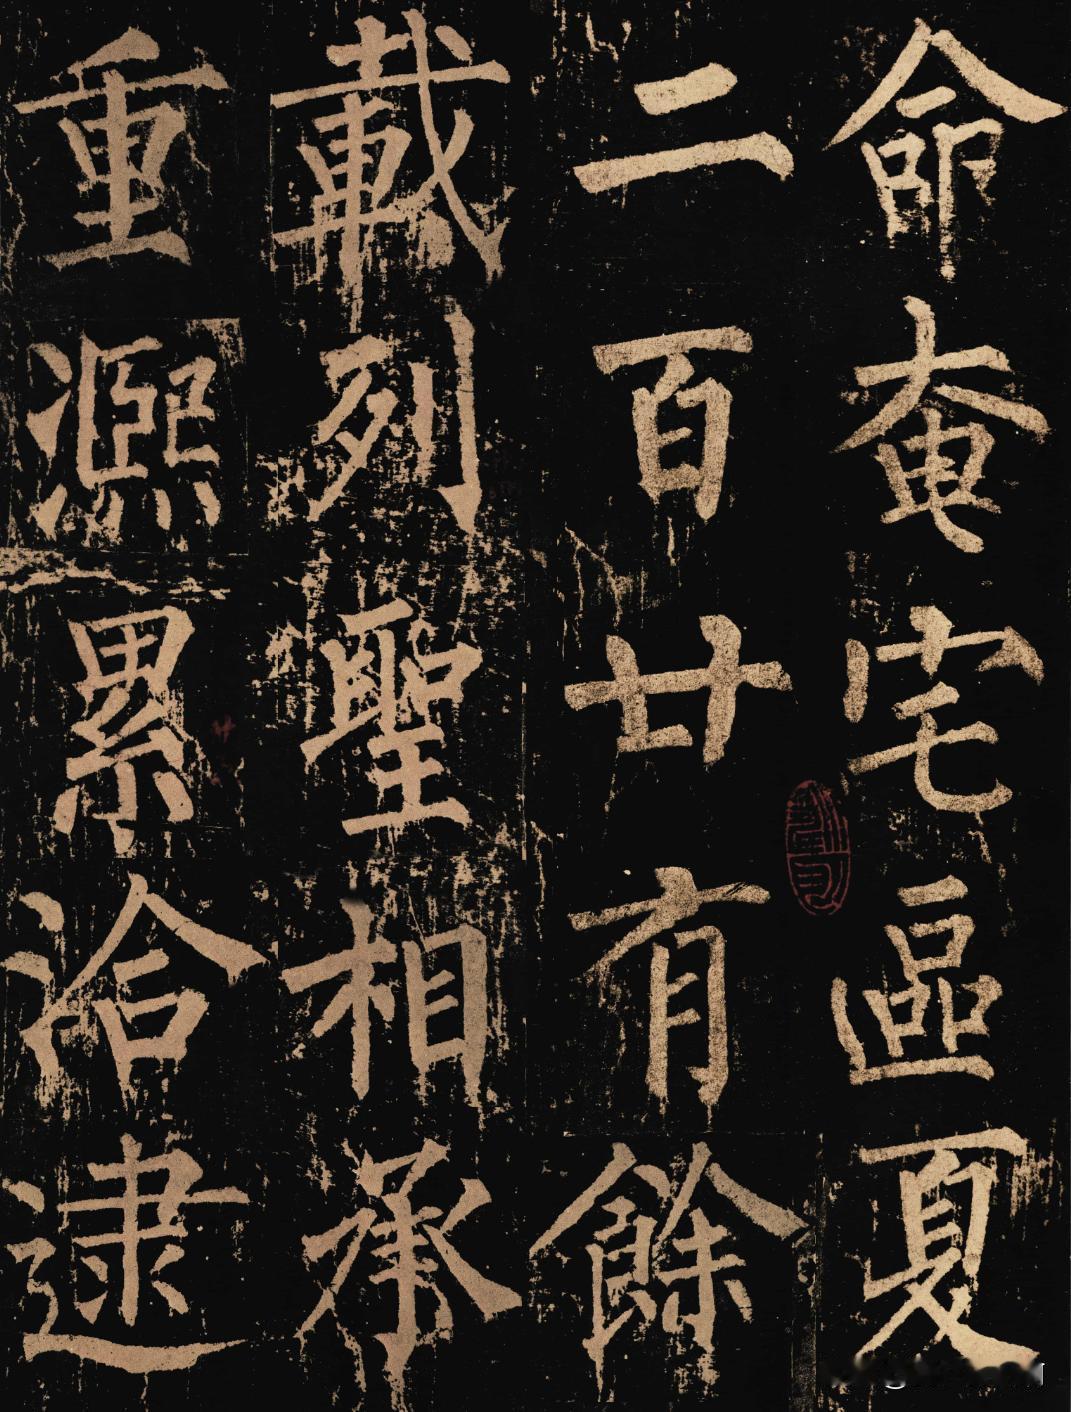 命奄宅區夏
二百廿有餘
載列聖相承
重熙累洽逮